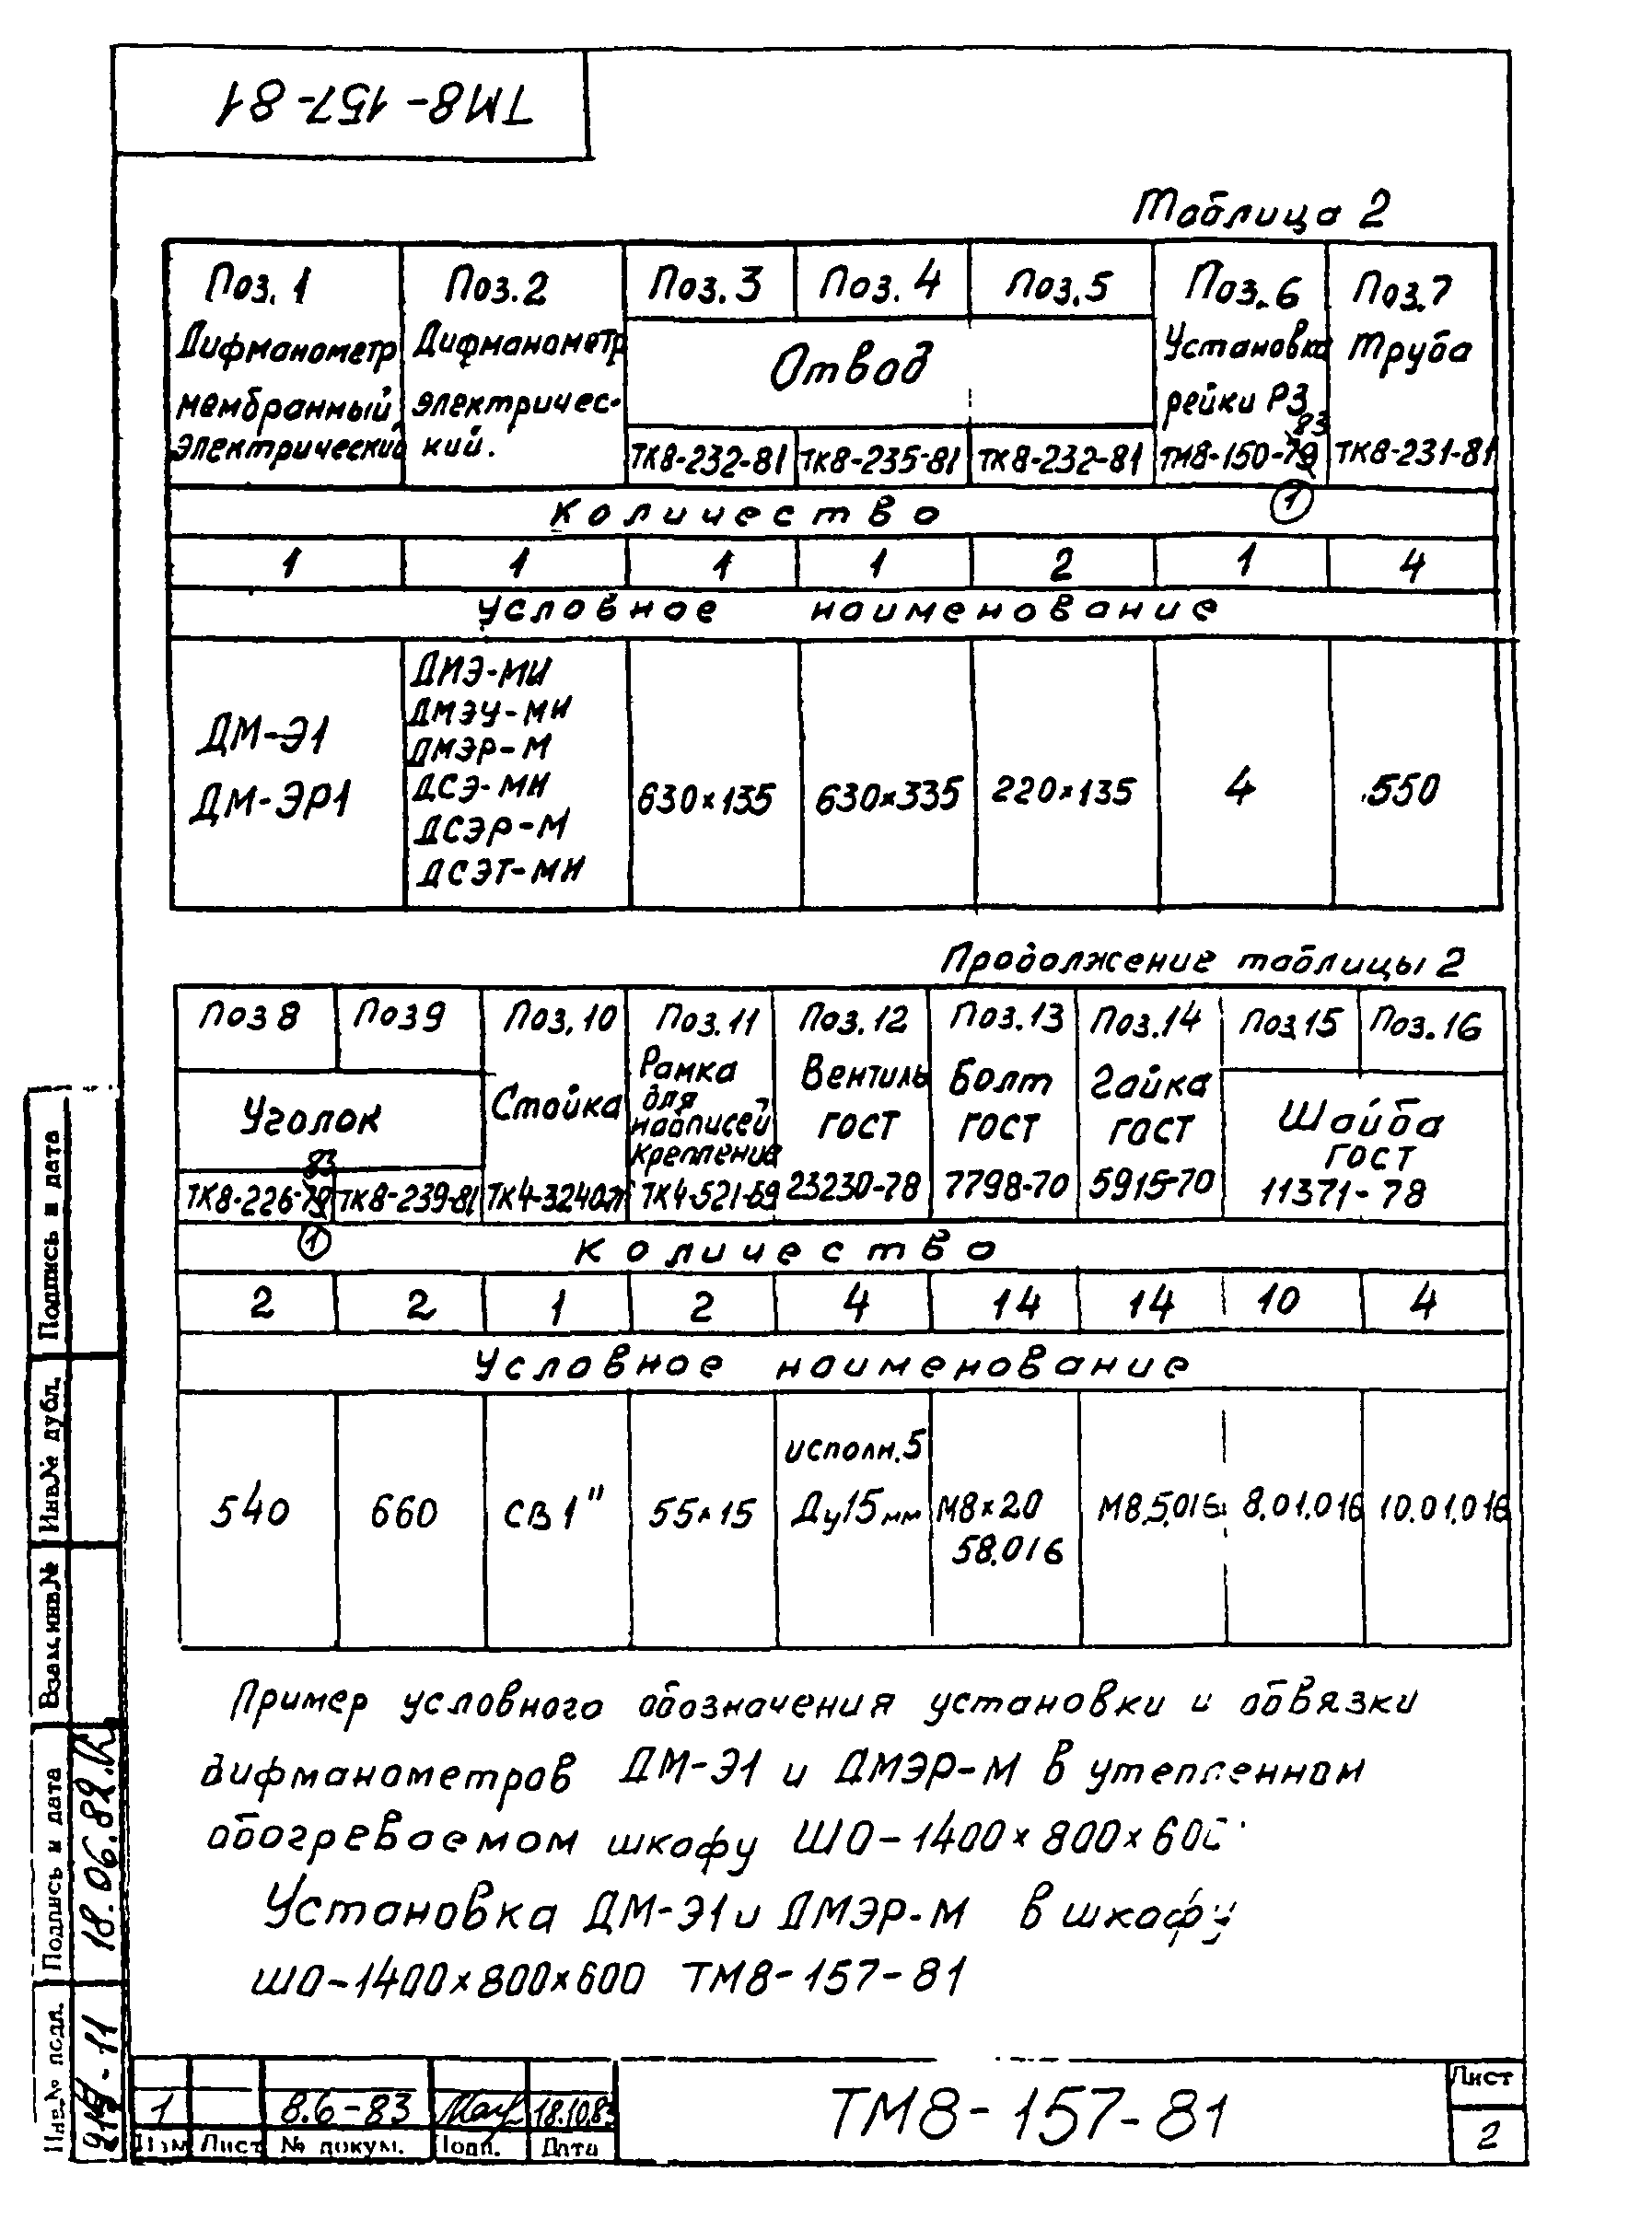 ТМ8-157-81
Таблица 2
Поз. 1 Поз. 2 Поз. 3 Поз. 4 Поз. 5 Поз. 6 Поз. 7
Дифманометр мембранный электрический
Дифманометр электричес-кий.
Отвод
Установка рейки РЗ
Труба
ТК8-232-81 ТК8-235-81 ТК8-232-81 ТМ8-150-79 83 ТК8-231-81
1
Количество
1 1 1 1 2 1 4
Условное наименование
ДМ-Э1
ДМ-ЭР1
ДИЭ-МИ
ДМЭУ-МИ
ДМЭР-М
ДСЭ-МИ
ДСЭР-М
ДСЭТ-МИ
630×135 630×335 220×135 4 550
Продолжение таблицы 2
Поз 8 Поз 9 Поз. 10 Поз. 11 Поз. 12 Поз. 13 Поз. 14 Поз 15 Поз. 16
Уголок
Стойка
Рамка для надписей крепление
Вентиль ГОСТ 23230-78
Болт ГОСТ 7798-70
Гайка ГОСТ 5915-70
Шайба ГОСТ 11371-78
ТК8-226-79 83 ТК8-239-81 ТК4-521-69
1
Количество
2 2 1 2 4 14 14 10 4
Условное наименование
540 660 СВ 1" 55×15
исполн. 5
Ду 15 мм
М8×20
58.016
М8.5.016 8.01.016 10.01.016
Пример условного обозначения установки и обвязки
дифманометров ДМ-Э1 и ДМЭР-М в утепленном
обогреваемом шкафу ШО-1400×800×600
Установка ДМ-Э1 и ДМЭР-М в шкафу
ШО-1400×800×600 ТМ8-157-81
Подпись и дата
Инв.№ дубл.
Взам.инв.№
Подпись и дата 18.06.82
Инв.№ подл.
1 8.6-83 18.10.83
Изм Лист № докум. Подп. Дата
ТМ8-157-81
Лист
2